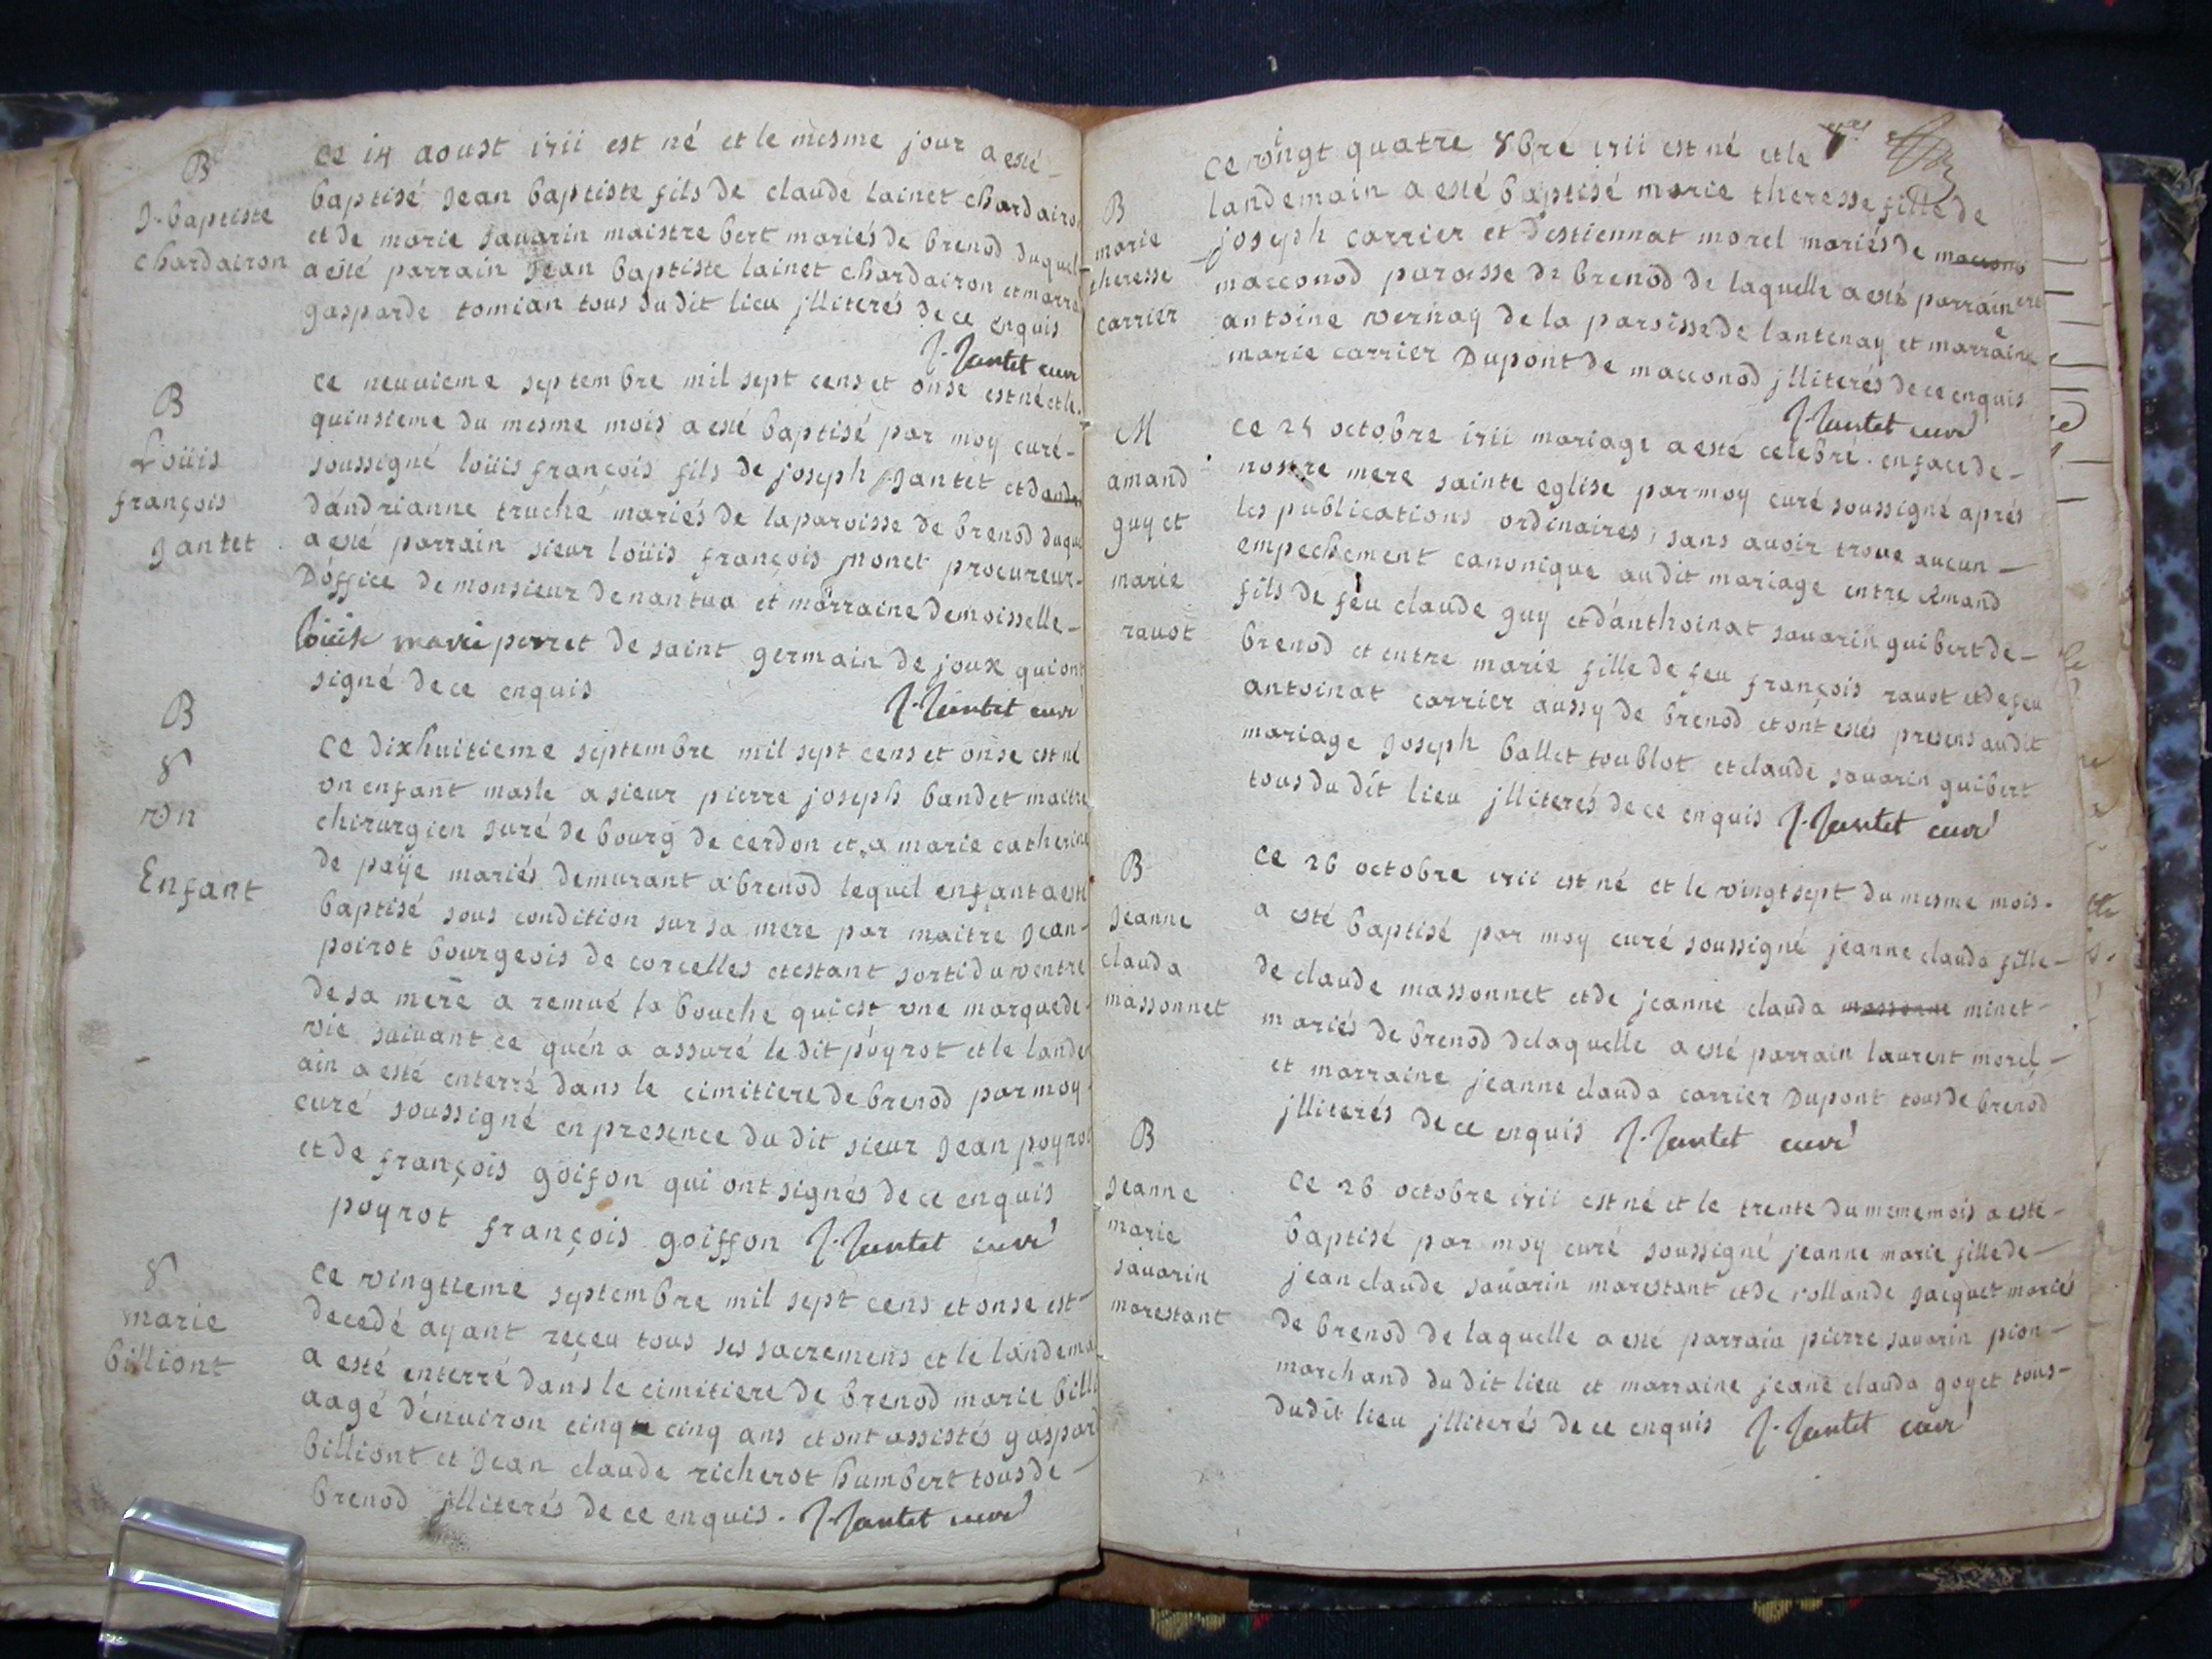 B
J. baptiste
chardairon
ce 14 aoust 1711 est né et le mesme jour a esté
baptisé jean baptiste fils de claude lainet chardairon
et de marie savarin maistre bert mariés de brenod duquel
a esté parrain jean baptiste lainet chardairon et marra
gasparde tomian tous du dit lieu jlliterés de ce enquis
J. Jantet curé
B
Loüis
françois
jantet
ce neuvieme septembre mil sept cens et onse est né et le
quinsieme du mesme mois a esté baptisé par moy curé
soussigné loüis françois fils de joseph jantet et
dándrianne truche mariés de la paroisse de brenod duque
a esté parrain sieur loüis françois monet procureur
dóffice de monsieur de nantua et marraine demoisselle
loüise marie perret de saint germain de joux qui ont
signé de ce enquis
J. Jantet curé
B
S
vn
Enfant
ce dixhuitieme septembre mil sept cens et onse est né
vn enfant masle a sieur pierre joseph bandet maitre
chirurgien juré de bourg de cerdon et a marie catherine
de paÿe mariés demurant a brenod lequel enfant a esté
baptisé sous condition sur sa mere par maitre jean
poirot bourgeois de corcelles et estant sorti du ventre
de sa mere a remué la bouche qui est vne marque de
vie suivant ce quén a assuré le dit póyrot et le lande
ain a esté enterré dans le cimitiere de brenod par moy
curé soussigné en presence du dit sieur jean poyrot
et de françois goifon qui ont signés de ce enquis
poyrot françois goiffon J. Jantet curé
S
marie
billiont
ce vingtieme septembre mil sept cens et onse est
decedé ayant reçeu tous ses sacremens et le landema
a esté enterré dans le cimitiere de brenod marie bill
aagé dénuiron cinq cinq ans et ont assistés gaspard
billiont et jean claude richerot humbert tous de
brenod jlliterés de ce enquis. J. Jantet curé
B
marie
theresse
carrier
ce vingt quatre 8bre 1711 est né et le
landemain a esté baptisé marie theresse fille de
joseph carrier et destiennat morel mariés de
macconod paroisse de brenod de laquelle a esté parrain
antoine vernay de la paroisse de lantenay et marraine
marie carrier Dupont de macconod jlliterés de ce enquis
J. Jantet curé
M
amand
guy et
marie
ravot
ce 25 octobre 1711 mariage a esté celebré en face de
nostre mere sainte eglise par moy curé soussigné aprés
les publications ordinaires, sans avoir trové aucun
empechement canonique au dit mariage entre Amand
fils de feu claude guy et dánthoinat savarin guibert de
brenod et entre marie fille de feu françois ravot et de feu
antoinat carrier aussy de brenod et ont estés presens au dit
mariage joseph ballet toublot et claude savarin guibert
tous du dit lieu jlliterés de ce enquis J. Jantet curé
B
jeanne
clauda
massonnet
ce 26 octobre 1711 est né et le vingt sept du mesme mois
a esté baptisé par moy curé soussigné jeanne clauda fille
de claude massonnet et de jeanne clauda minet
mariés de brenod delaquelle a esté parrain laurent morel
et marraine jeanne clauda carrier Dupont tous de brenod
jlliterés de ce enquis J. Jantet curé
B
jeanne
marie
savarin
marestant
ce 26 octobre 1711 est né et le trente du meme mois a esté
baptisé par moy curé soussigné jeanne marie fille de
jean claude savarin marestant et de rollande jacquet mariés
de brenod de laquelle a esté parrain pierre savarin pion
marchand du dit lieu et marraine jeane clauda goyet tous
du dit lieu jlliterés de ce enquis J. Jantet curé